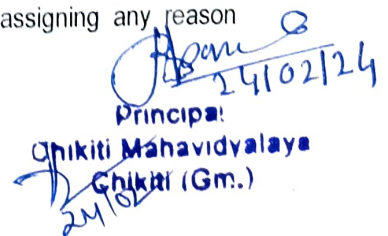 assigning any reason
24/02/24
Principal
Chikiti Mahavidyalaya
Chikiti (Gm.)
24/02